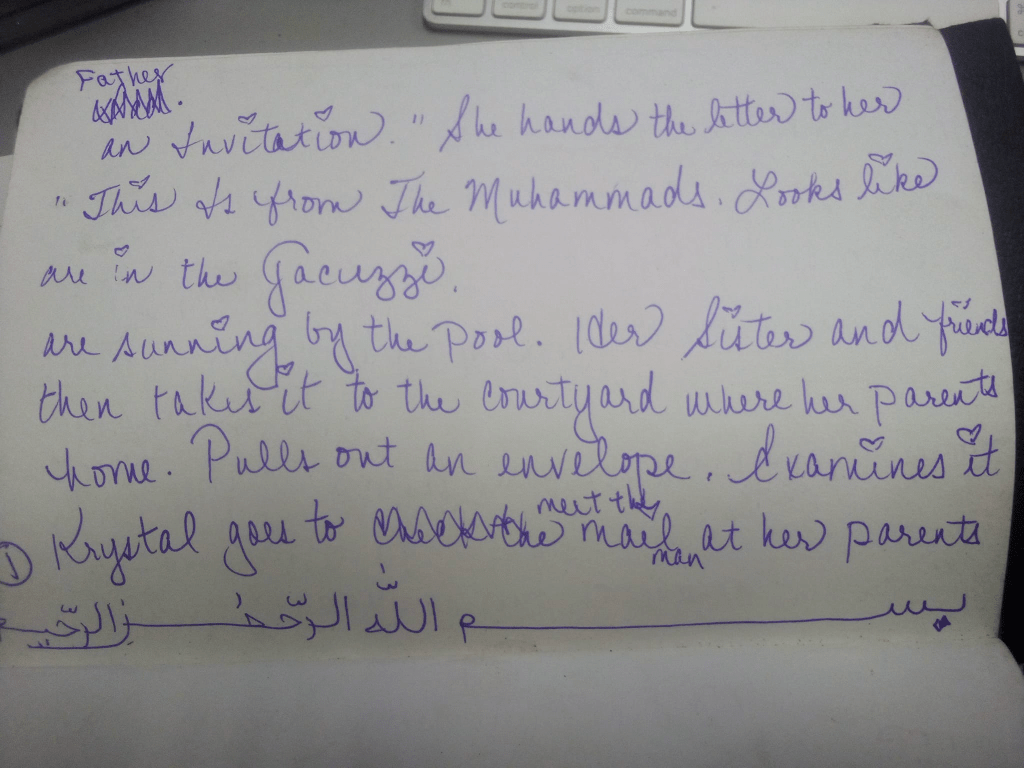 بسم اللّٰه الرّحمٰن الرّحيم
① Krystal goes to meet the mail man at her parents
home. Pulls out an envelope. Examines it
then takes it to the courtyard where her parents
are sunning by the pool. Her Sister and friends
are in the Jacuzzi.
"This Is from The Muhammads. Looks like
an Invitation." She hands the letter to her
Father.